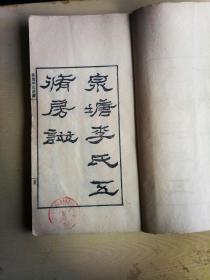 泉塘李氏五
脩房譜